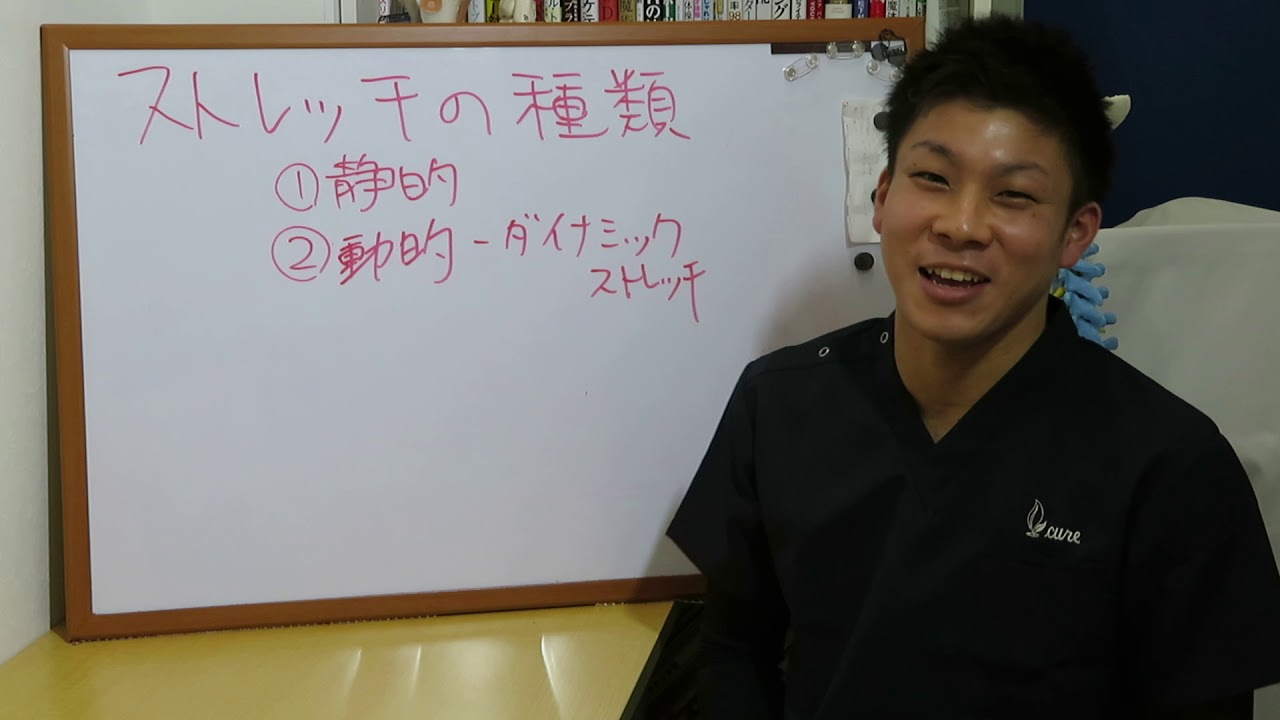 ストレッチの種類
①静的
②動的-ダイナミック
ストレッチ
cure